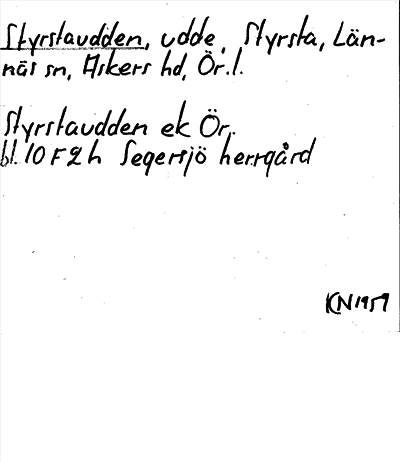 Styrstaudden, udde, Styrsta, Län-
näs sn, Askers hd, Ör. l.
Styrstaudden ek Ör.
bl. 10 F 2 h Segersjö herrgård
KN 1959